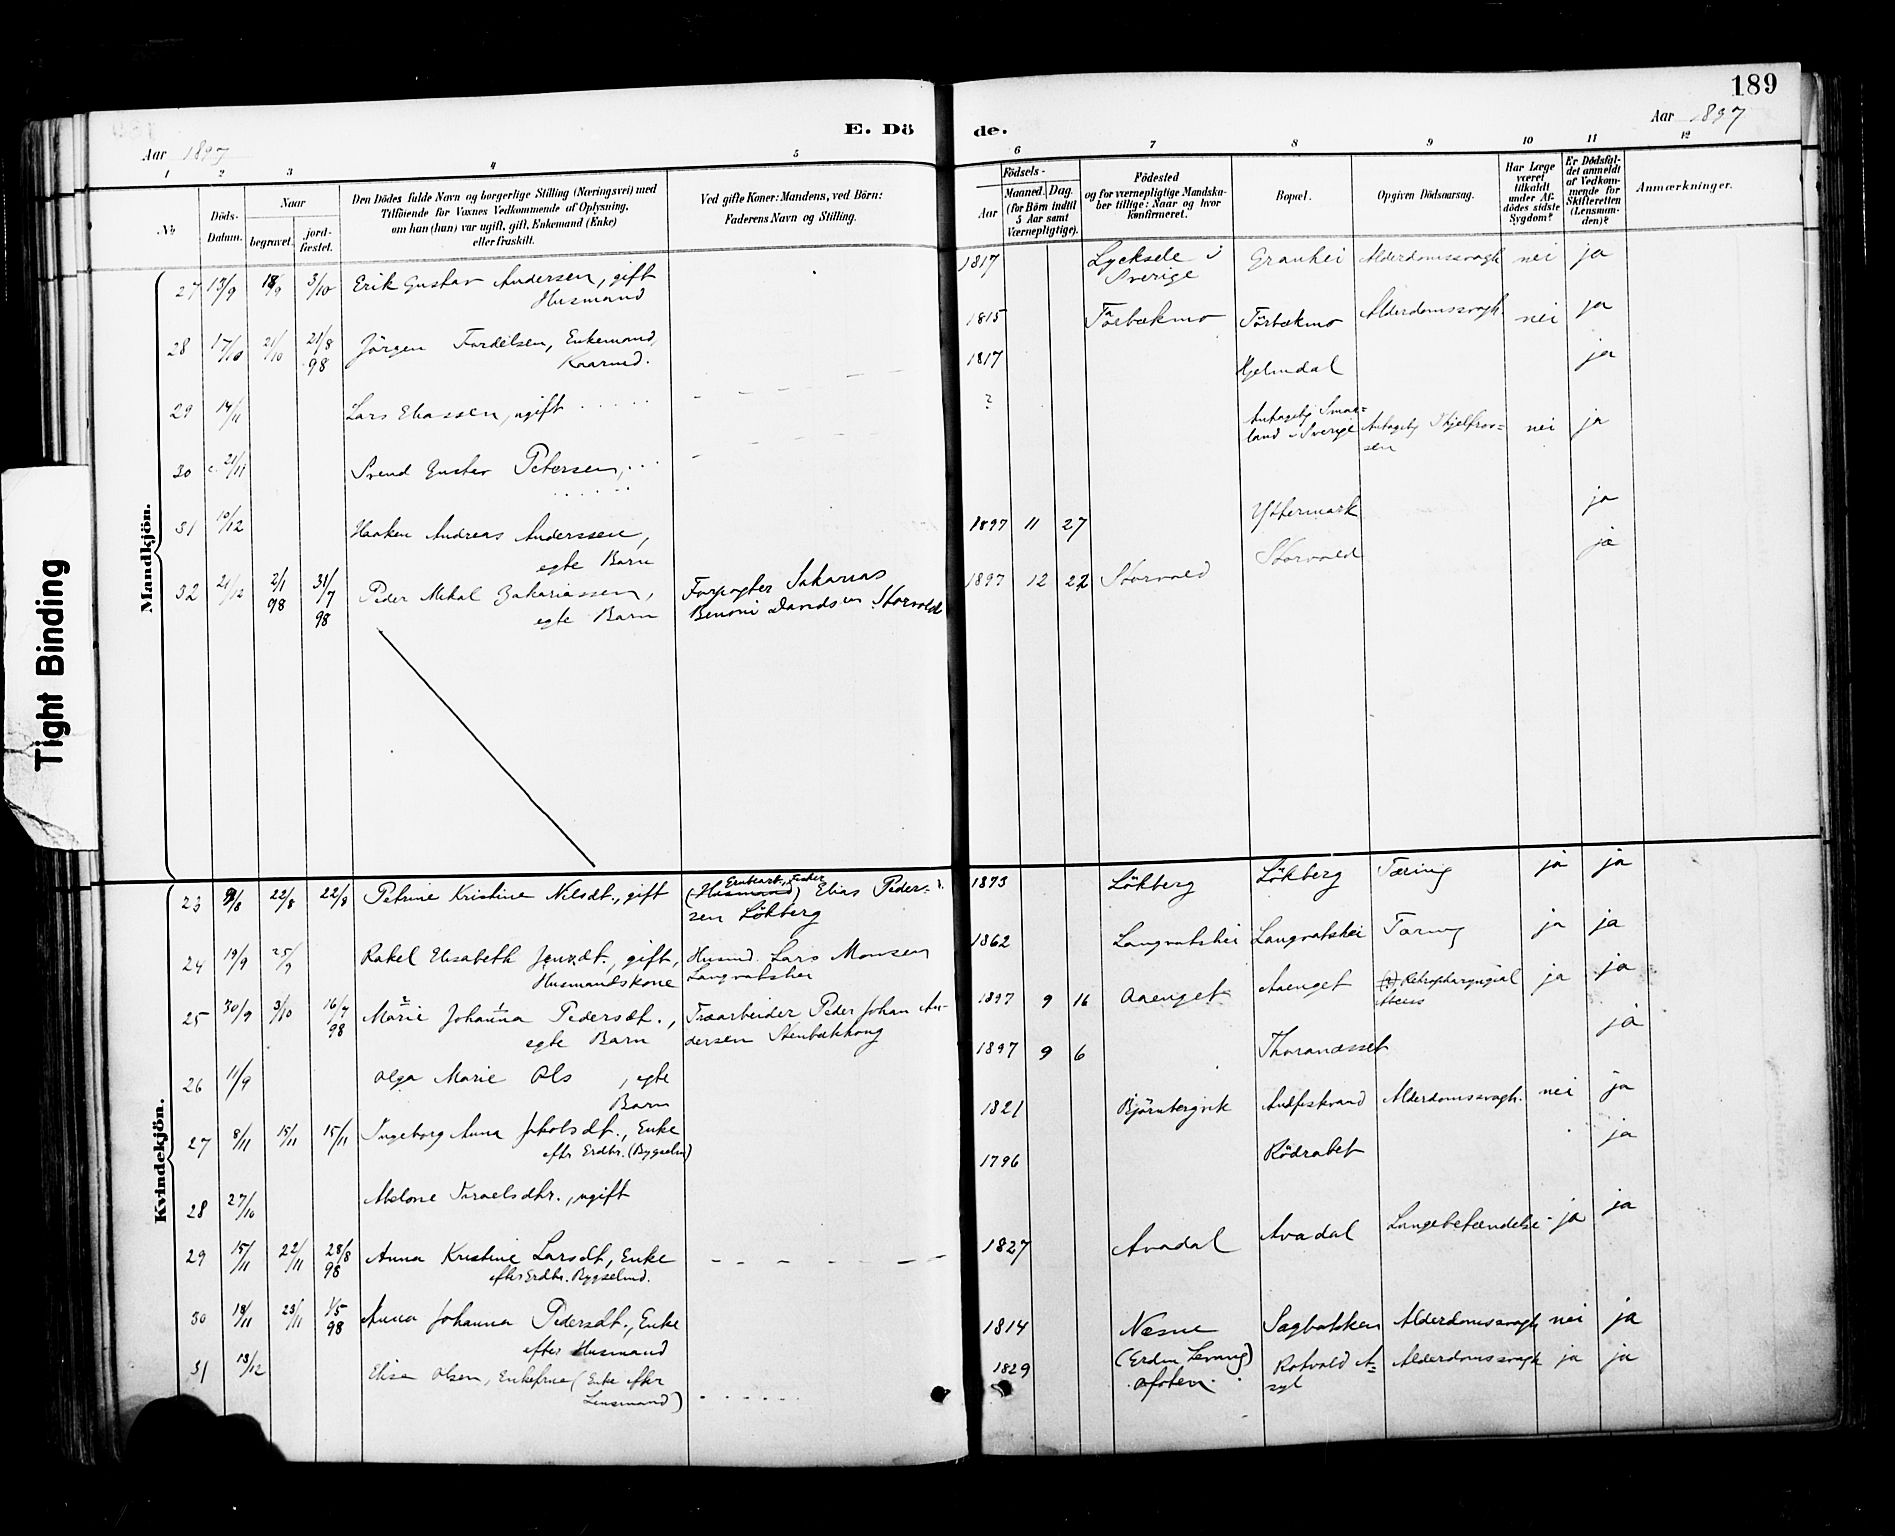 189
E. Dö de.
Aar 1897
Aar 1897
1 2 3 4 5 6 7 8 9 10 11 12
No
Döds-
Datum.
Naar
begravet.
jord-
fæstet.
Den Dödes fulde Navn og borgerlige Stilling (Næringsvei) med
Tilföiende for Voxnes Vedkommende af Oplysning,
om han (hun) var ugift, gift, Enkemand (Enke)
eller fraskilt.
Ved gifte Koner: Mandens, ved Börn:
Faderens Navn og Stilling.
Födsels-
Aar
Maaned. Dag.
(for Börn indtil
5 Aar samt
Værnepligtige).
Födested
og for værnepligtige Mandska-
ber tillige: Naar og hvor
konfirmeret.
Bopæl.
Opgiven Dödsaarsag.
Har Læge
været
tilkaldt
under Af-
dödes sidste
Sygdom?
Er Dödsfal-
det anmeldt
af Vedkom-
mende for
Skifteretten
(Lensman-
den)?
Anmærkninger.
Mandkjön.
27 13/9 18/9 3/10 Erik Gustav Andersen, gift
Husmand
1817 Lycksele i
Sverige
Granhei Alderdomssvagh. nei ja
28 17/10 21/10 21/8
98
Jörgen Fordelsen, Enkemand,
Kaarmd.
1815 Törbækmo Törbækmo Alderdomssvagh. nei ja
29 14/11 Lars Eliassen, ugift
1817 Hjelmdal ja
30 c. 21/11 Svend Gustav Petersen,
? Antagelig Smaa=
land i Sverige
Antagelig Ihjelfros=
sen
nei ja
31 10/12 Haaken Andreas Anderssen,
egte Barn
1897 11 27 Yttermark ja
32 21/12 2/1
98
31/7
98
Peder Mikal Zakariassen,
egte Barn
Forpagter Sakarias
Benoni Davidsen Storvold
1897 12 22 Storvold Storvold ja
Tight Binding
Kvindekjön.
23 9/8 22/8 22/8 Petrine Kristine Nilsdt., gift
(Husmand) Elias Peder-
sen Lökberg
1873 Lökberg Lökberg Tæring ja ja
24 19/9 25/9 Rakel Elisabeth Jensdt., gift,
Husmandskone
Husmd. Lars Monsen
Langvatshei
1862 Langvatshei Langvatshei Tæring ja ja
25 30/9 3/10 16/7
98
Marie Johanna Pedersdt.,
egte Barn
Træarbeider Peder Johan An-
dersen Stenbækhaug
1897 9 16 Aaenget Aaenget (?) Retropharyngial
ja ja
26 11/9 Olga Marie Ols , egte
Barn
1897 9 6 Thoranesset ja
27 8/11 15/11 15/11 Ingeborg Anna Jakobsdt., Enke
efter Erdbr. (Bygselm)
1821 Björnbergvik Andfiskvand Alderdomssvagh. nei ja
28 27/10 Abelone Israelsdtr., ugift
1796 Rödrabet ja
29 15/11 22/11 28/8
98
Anna Kristine Larsdt., Enke
efter Erdbr. Bygselmd.
1827 Avadal Avadal Lungebetændelse ja ja
30 18/11 23/11 1/5
98
Anna Johanna Pedersdt., Enke
efter Husmand
1814 Næsne Sagbakken Alderdomssvagh nei ja
31 13/12 Elise Olsen, Enkefrue (Enke efter
Lensmand)
1829 Rotvold A=
syl
Alderdomssvagh ja ja